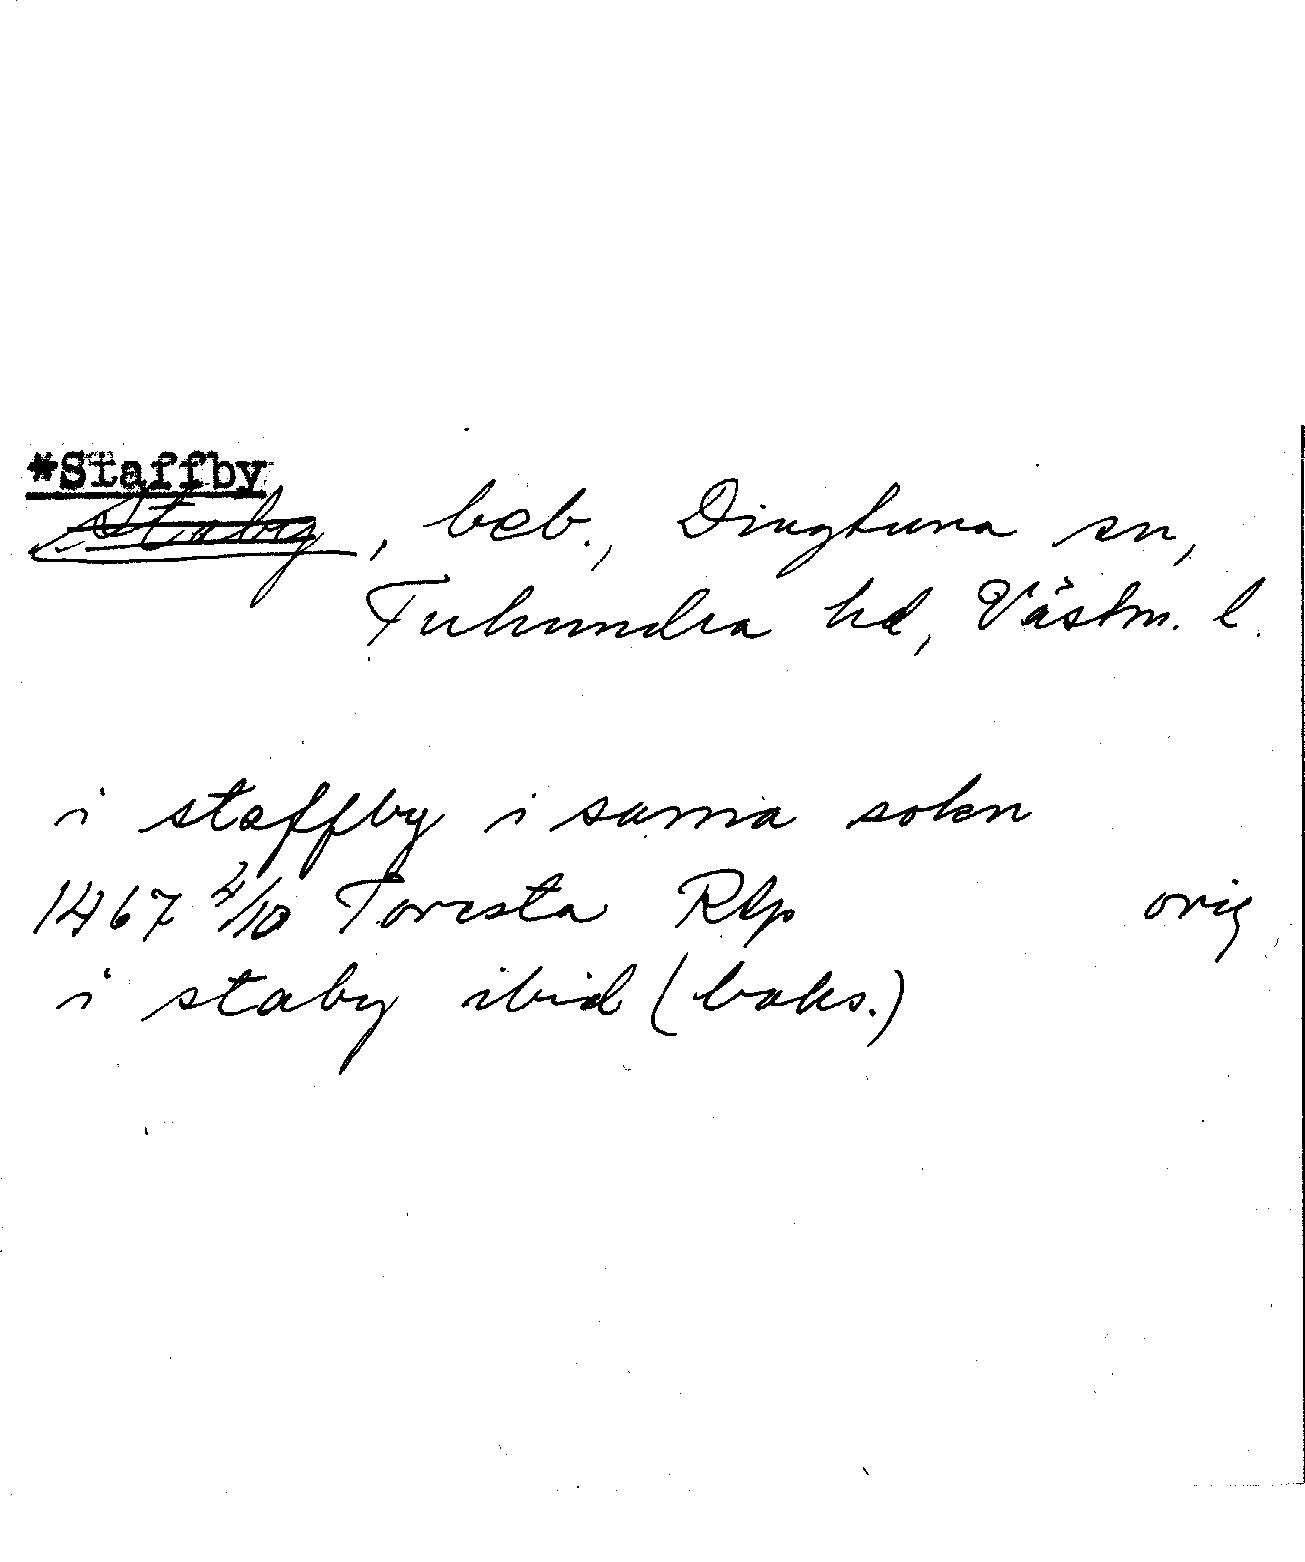 *Staffby
Staby, beb., Dingtuna sn,
Tuhundra hd, Västm. l.
i staffby i sama sokn
1467 4/10 Toresta Rlp orig
i staby ibid (baks.)